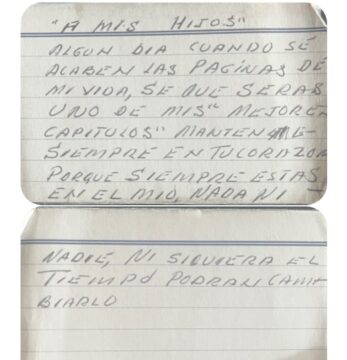 "A MIS HIJOS"
ALGUN DIA CUANDO SÉ
ACABEN LAS PAGINAS DE
MI VIDA, SE QUE SERAS
UNO DE MIS "MEJORES
CAPITULOS" MANTENME-
SIEMPRE EN TU CORAZON
PORQUE SIEMPRE ESTAS
EN EL MIO, NADA NI -
NADIE, NI SIQUIERA EL
TIEMPO PODRAN CAM-
BIARLO